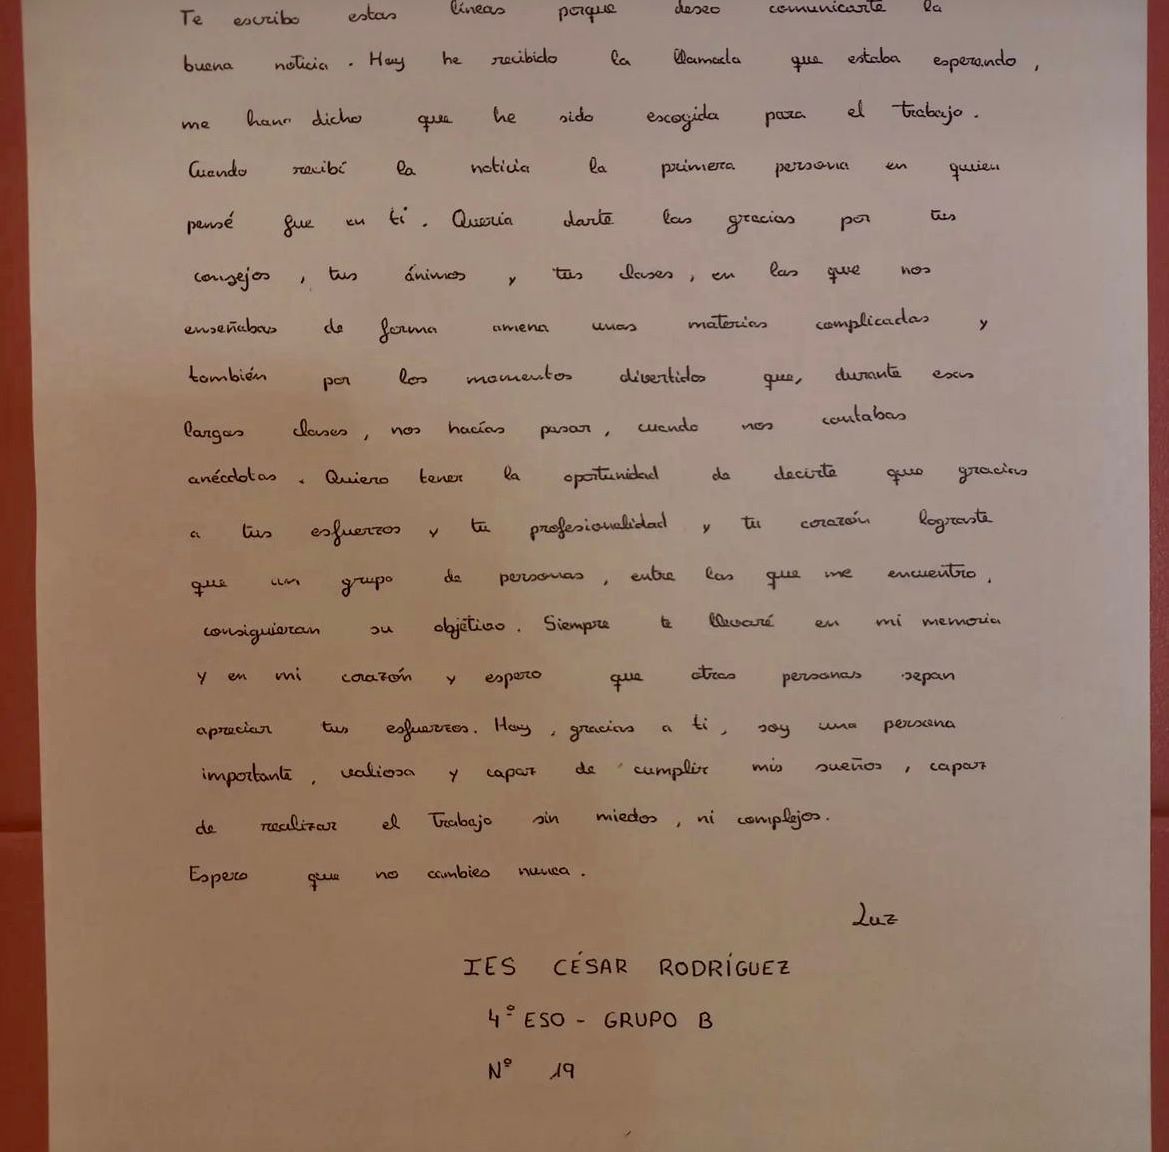 Te escribo estas líneas porque deseo comunicarte la
buena noticia. Hoy he recibido la llamada que estaba esperando,
me han dicho que he sido escogida para el trabajo.
Cuando recibí la noticia la primera persona en quien
pensé fue en ti. Quería darte las gracias por tus
consejos, tus ánimos y tus clases, en las que nos
enseñabas de forma amena unas materias complicadas y
también por los momentos divertidos que, durante esas
largas clases, nos hacías pasar, cuando nos contabas
anécdotas. Quiero tener la oportunidad de decirte que gracias
a tus esfuerzos y tu profesionalidad y tu corazón lograste
que un grupo de personas, entre las que me encuentro,
consiguieran su objetivo. Siempre te llevaré en mi memoria
y en mi corazón y espero que otras personas sepan
apreciar tus esfuerzos. Hoy, gracias a ti, soy una persona
importante, valiosa y capaz de cumplir mis sueños, capaz
de realizar el trabajo sin miedos, ni complejos.
Espero que no cambies nunca.
Luz
IES CÉSAR RODRÍGUEZ
4º ESO - GRUPO B
Nº 19